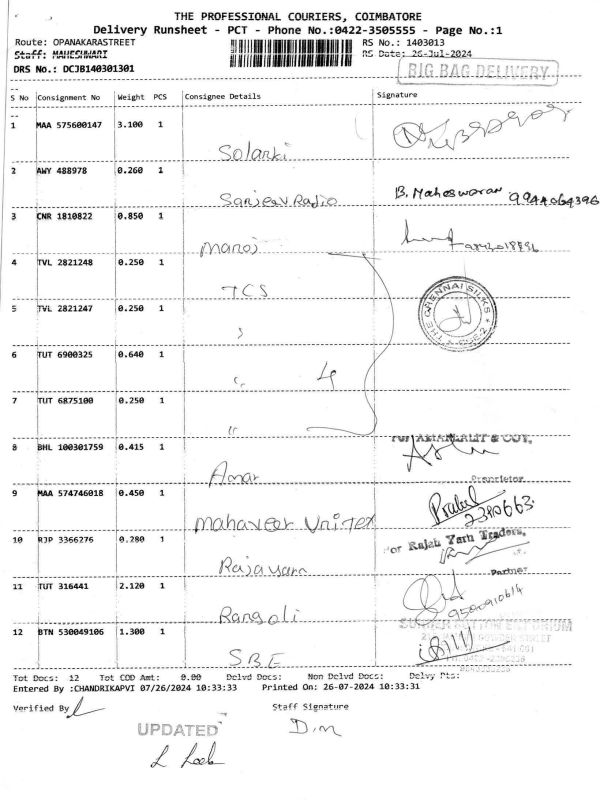 THE PROFESSIONAL COURIERS, COIMBATORE
Delivery Runsheet - PCT - Phone No.:0422-3505555 - Page No.:1
Route: OPANAKARASTREET RS No.: 1403013
Staff: MAHESHWARI RS Date: 26-Jul-2024
DRS No.: DCJB140301301 BIG BAG DELIVERY
S No Consignment No Weight PCS Consignee Details Signature
1 MAA 575600147 3.100 1
Solanki
2 AWY 488978 0.260 1 B. Maheswaran
Sanjeev Radio 9944064396
3 CNR 1810822 0.850 1
Manoj
4 TVL 2821248 0.250 1
TCS THE CHENNAI SILKS
5 TVL 2821247 0.250 1
"
6 TUT 6900325 0.640 1
" 4
7 TUT 6875100 0.250 1
"
8 BHL 100301759 0.415 1
Amar Proprietor
9 MAA 574746018 0.450 1
Mahaveer Unitex 2390663.
10 RJP 3366276 0.280 1 For Rajah Yarn Traders,
Rajayarn Partner
11 TUT 316441 2.120 1
Rangoli
12 BTN 530049106 1.300 1
S.B.E
Tot Docs: 12 Tot COD Amt: 0.00 Delvd Docs: Non Delvd Docs: Delvy Pts:
Entered By :CHANDRIKAPVI 07/26/2024 10:33:33 Printed On: 26-07-2024 10:33:31
Verified By Staff Signature
UPDATED